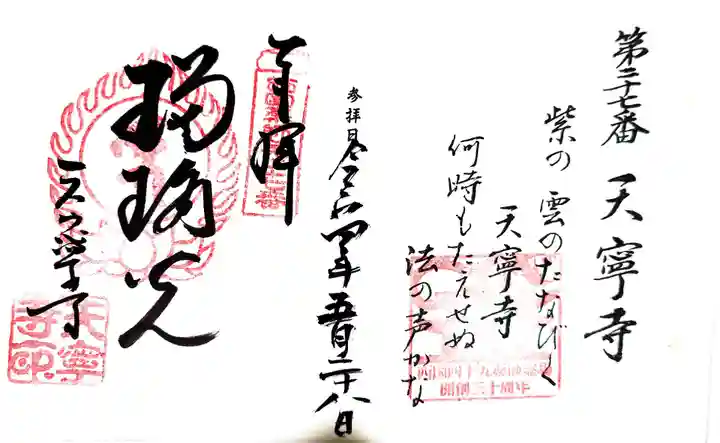 第二十七番 天寧寺
紫の雲のたなびく
天寧寺
何時もたえせぬ
法の声かな
参拝日 令和四年五月二十八日
奉拝
瑠璃光
天寧寺
天寧
寺印
開創三十周年